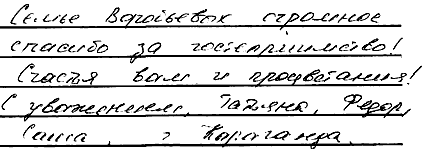 Семье Воробьевых огромное
спасибо за гостеприимство!
Счастья вам и процветания!
С уважением, Татьяна, Федор,
Саша, г Караганда.